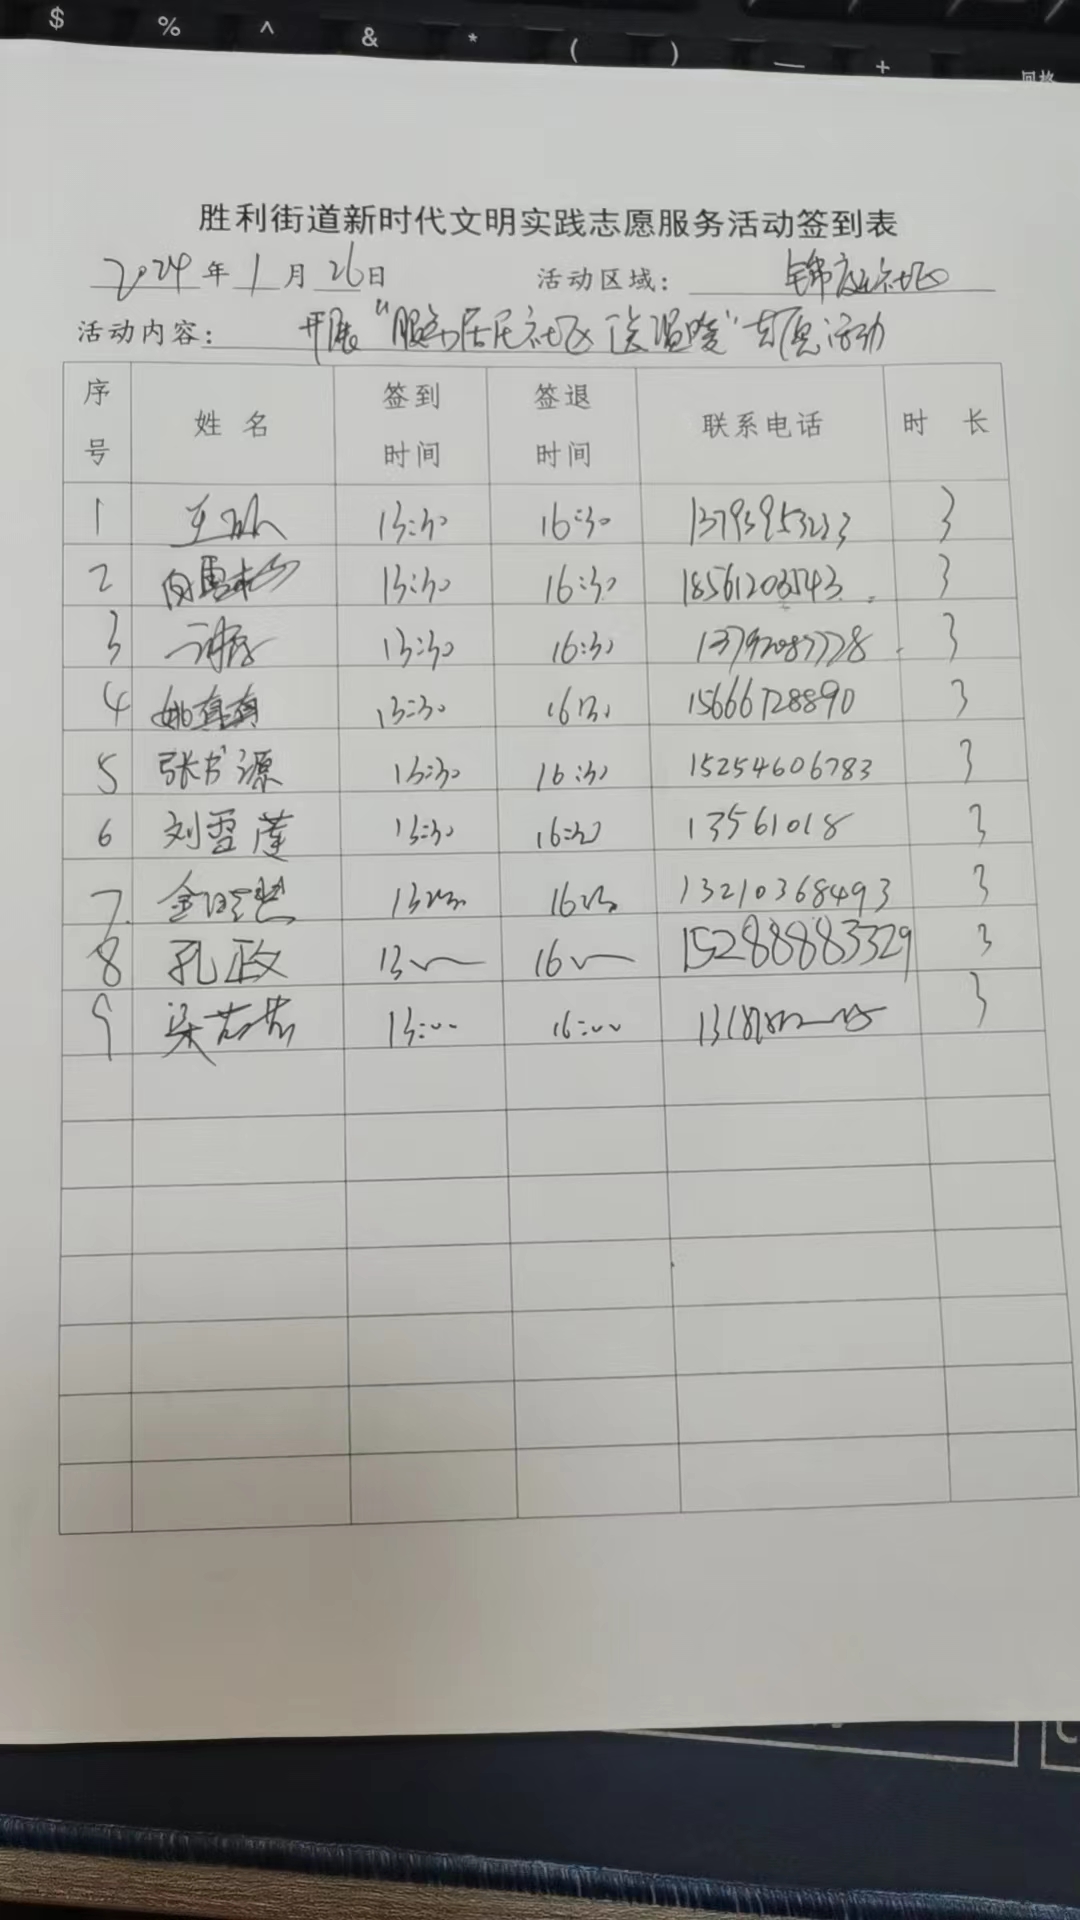 $ % ^ & * ( ) — +
胜利街道新时代文明实践志愿服务活动签到表
2024年1月26日 活动区域：锦庭社区
活动内容：开展“服务居民社区送温暖”志愿活动
序号 姓名 签到时间 签退时间 联系电话 时长
1 13:30 16:30 13793953223 3
2 13:30 16:30 3
3 13:30 16:30 3
4 姚真真 13:30 16:30 15666728890 3
5 张书源 13:30 16:30 15254606783 3
6 刘雪莲 13:30 16:30 13561018 3
7. 13:30 16:30 13210368493 3
8 孔政 13 16 15288883329 3
9 梁芸芸 13:00 16:00 3